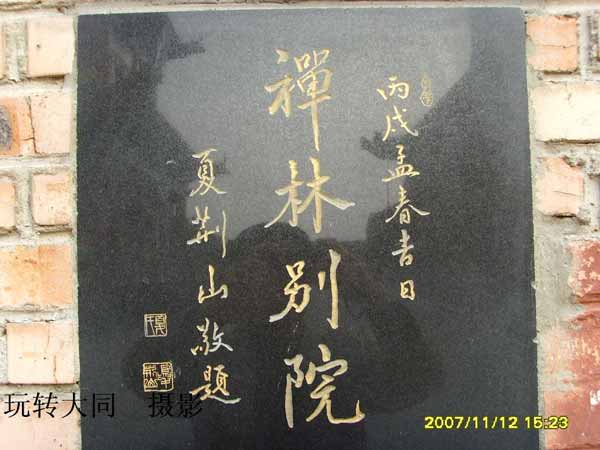 丙戌孟春吉日
禪林别院
夏荊山敬題
玩转大同 摄影
2007/11/12 15:23